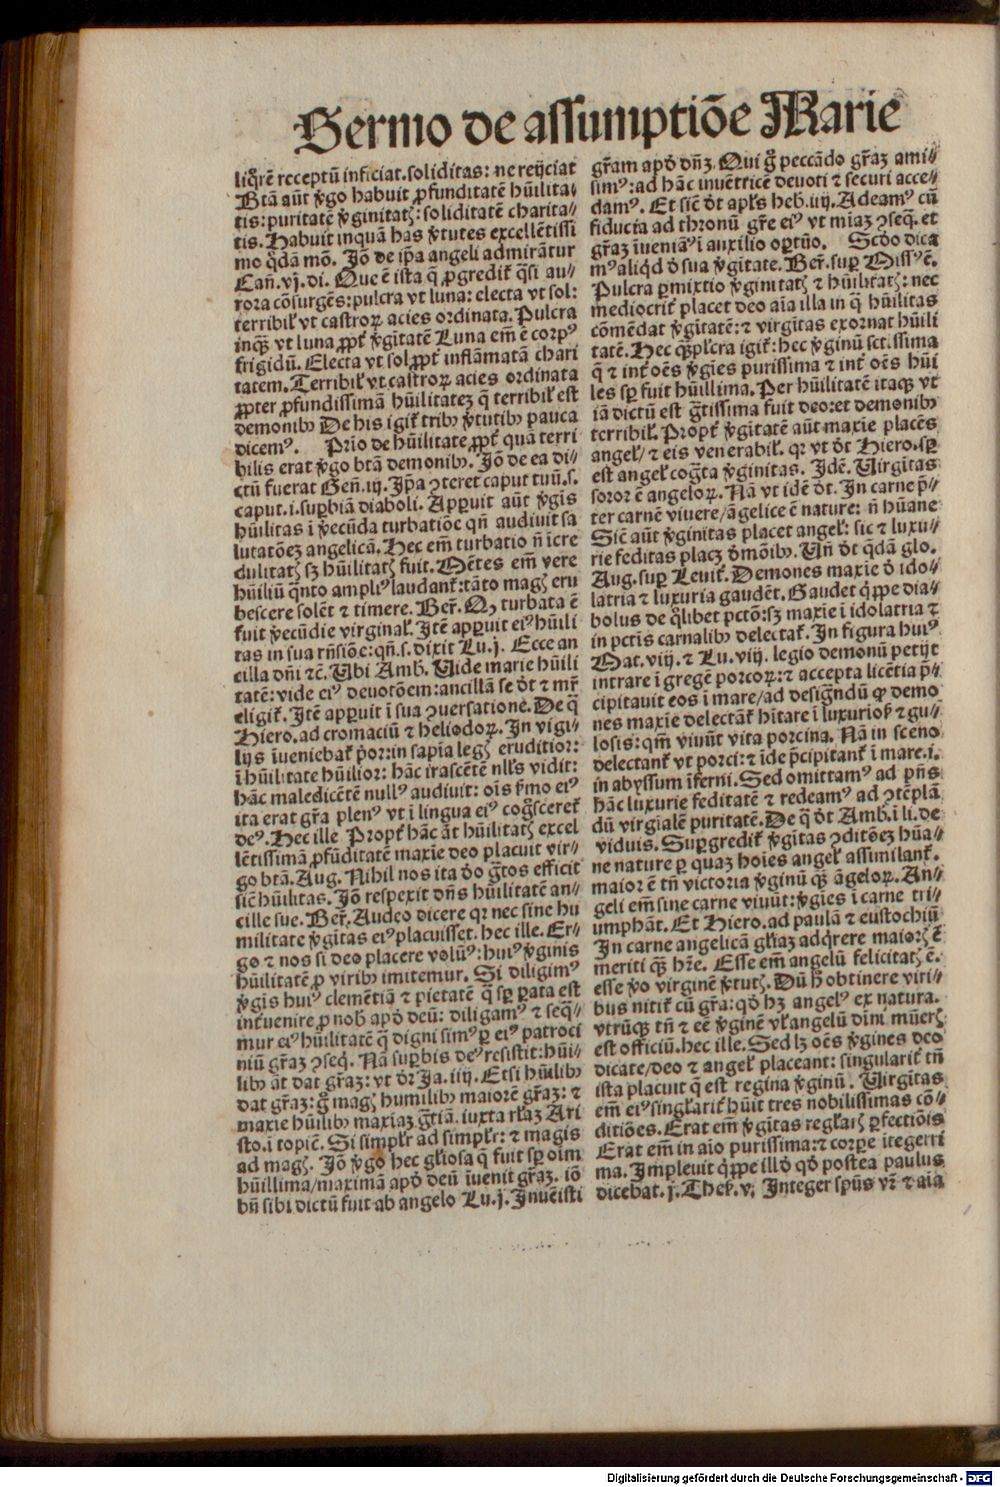 Sermo de assumptiōe Marie
liq̄rē receptū inficiat. soliditas: ne reijciat
Btā aūt v̄go habuit ꝓfunditatē hūilita⸗
tis: puritatē v̄ginitatꝭ: soliditatē charita⸗
tis. Habuit inquā has v̄tutes excellētissi
mo q̄dā mō. Jō de ip̄a angeli admirātur
Cañ. vj. di. Que ē ista q̄ ꝓgredit᷑ q̄si au⸗
rora cōsurgēs: pulcra vt luna: electa vt sol:
terribil᷑ vt castroꝝ acies ordinata. Pulcra
inqꝫ vt luna ꝓpt᷑ v̄gitatē Luna em̄ ē corpꝰ
frigidū. Electa vt sol ꝓpt᷑ inflāmatā chari
tatem. Terribil᷑ vt castroꝝ acies ordinata
ꝓpter ꝓfundissimā hūilitateꝫ q̄ terribil᷑ est
demonibꝰ De his igit᷑ tribꝰ v̄tutibꝰ pauca
dicemꝰ. Prīo de hūilitate ꝓpt᷑ quā terri
bilis erat v̄go btā demonibꝰ. Jō de ea di⸗
ctū fuerat Geñ. iij. Jp̄a ꝯteret caput tuū. s.
caput. i. suꝑbiā diaboli. Apparuit aūt v̄gīs
hūilitas ī v̄ecūda turbatiōe qn̄ audiuit sa
lutatōeꝫ angelicā. Hec em̄ turbatio n̄ icre
dulitatꝭ sꝫ hūilitatꝭ fuit. Mētes em̄ vere
hūiliū q̄nto ampliꝰ laudant᷑: tāto magꝭ eru
bescere solēt ⁊ timere. Ber̄. Qꝙ turbata ē
fuit v̄ecūdie virginal᷑. Jtē apparuit eiꝰ hūili
tas in sua rn̄siōe: qn̄. s. dixit Lu. j. Ecce an
cilla dn̄i ⁊c̄. Vbi Amb̄. Vide marie hūili
tatē: vide eiꝰ deuotōem: ancillā se d̄t ⁊ mr̄
eligit᷑. Jtē apparuit ī sua ꝯuersatione. De q̄
Hiero. ad cromaciū ⁊ heliodoꝝ. Jn vigi⸗
lijs īueniebat᷑ p̄or: in sapīa legꝭ eruditior:
ī hūilitate hūilior: hāc irascētē nll̄s vidit:
hāc maledicētē nullꝰ audiuit: oīs s̄mo eiꝰ
ita erat gr̄a plenꝰ vt ī lingua eiꝰ coḡsceret᷑
deꝰ. Hec ille Propt᷑ hāc āt hūilitatꝭ excel
lētissimā ꝓfūditatē maxīe deo placuit vir⸗
go btā. Aug. Nihil nos ita d̄o ḡtos efficit
sic̄ hūilitas. Jō respexit dn̄s hūilitatē an⸗
cille sue. Ber̄. Audeo dicere qꝛ nec sine hu
militate v̄gītas eiꝰ placuisset. hec ille. Er⸗
go ⁊ nos si deo placere volūꝰ: huiꝰ v̄ginis
hūilitatē ꝓ viribꝰ imitemur. Si diligimꝰ
v̄gīs huiꝰ clemētiā ⁊ pietatē q̄ sꝑ parata est
int᷑uenire ꝓ nob̄ apd̄ deū: diligamꝰ ⁊ seq̄⸗
mur eiꝰ hūilitatē q̄ digni simꝰ ꝑ eiꝰ patroci
niū gr̄aꝫ ꝯseq̄. Nā suꝑbis deꝰ resistit: hūi⸗
libꝰ āt dat gr̄aꝫ: vt d̄r Ja. iiij. Etsi hūilibꝰ
dat gr̄aꝫ: g̊ magꝭ humilibꝰ maiorē gr̄aꝫ: ⁊
maxie hūilibꝰ maxiaꝫ ḡtiā. iuxta rl̄aꝫ Ari
sto. ī topic̄. Si simpl̄r ad simpl̄r: ⁊ magis
ad magꝭ. Jō v̄go hec gl̄iosa q̄ fuit sꝑ oīm
hūillima/maximā apd̄ deū īuenit gr̄aꝫ. iō
bn̄ sibi dictū fuit ab angelo Lu. j. Jnuēisti
gr̄am apd̄ dn̄ꝫ. Qui g̊ peccādo gr̄aꝫ ami⸗
simꝰ: ad hāc inuētricē deuoti ⁊ securi acce⸗
damꝰ. Et sic̄ d̄t apl̄s heb̄. iiij. Adeamꝰ cū
fiducia ad thronū gr̄e eiꝰ vt mīaꝫ ꝯseq̄. et
gr̄aꝫ īueniāꝰ ī auxilio oꝑtūo. Scd̄o dica
mꝰ aliq̄d d̄ sua v̄gītate. Ber̄. suꝑ Missꝰ ē.
Pulcra ꝑmixtio v̄ginitatꝭ ⁊ hūilitatꝭ: nec
mediocrit᷑ placet deo aīa illa in q̄ hūilitas
cōmēdat v̄gītatē: ⁊ virgītas exornat hūili
tatē. Hec qꝫ pl̄cra igit᷑: hec v̄ginū sct̄issima
q̄ ⁊ int᷑ oēs v̄gīes purissima ⁊ int᷑ oēs hūi
les sꝑ fuit hūillima. Per hūilitatē itaqꝫ vt
iā dictū est ḡtissima fuit deo: et demonibꝰ
terribil᷑. Propt᷑ v̄gītatē aūt maxie placēs
angel᷑/⁊ eis venerabil᷑. qꝛ vt d̄t Hiero. sꝑ
est angel᷑ coḡta v̄ginitas. Jdē. Virgītas
soror ē angeloꝝ. Nā vt idē d̄t. Jn carne p̄⸗
ter carnē viuere/āgelice ē nature: n̄ hūane
Sic̄ aūt v̄ginitas placet angel᷑: sic ⁊ luxu⸗
rie feditas placꝫ d̄mōibꝰ. Vn̄ d̄t q̄dā glo.
Aug. suꝑ Leuit᷑. Demones maxie d̄ ido⸗
latria ⁊ luxuria gaudēt. Gaudet q̄ppe dia⸗
bolus de q̄libet pctō: sꝫ maxie ī idolatria ⁊
in pctīs carnalibꝰ delectat᷑. Jn figura huiꝰ
Mat. viij. ⁊ Lu. viij. legio demonū petijt
intrare ī gregē porcoꝝ: ⁊ accepta licētia p̄⸗
cipitauit eos ī mare/ad desiḡndū qꝙ demo
nes maxie delectāt᷑ hītare ī luxurios̄ ⁊ gu⸗
losis: qm̄ viuūt vita porcina. Nā in sceno
delectant᷑ vt porci: ⁊ īde p̄cipitant᷑ ī mare. i.
in abyssum īferni. Sed omittamꝰ ad p̄ns
hāc luxurie feditatē ⁊ redeamꝰ ad ꝯtēplā
dū virgīalē puritatē. De q̄ d̄t Amb̄. ī li. de
viduis. Suꝑgredit᷑ v̄gītas ꝯditōeꝫ hūa⸗
ne nature ꝑ quaꝫ hoīes angel᷑ assimilant᷑.
maior ē tn̄ victoria v̄ginū qꝫ āgeloꝝ. An⸗
geli em̄ sine carne viuūt: v̄gīes ī carne tri⸗
umphāt. Et Hiero. ad paulā ⁊ eustochiū
Jn carne angelicā gl̄iaꝫ adq̄rere maiorꝭ ē
meriti qꝫ hr̄e. Esse em̄ angelū felicitatꝭ ē.
esse v̄o virginē v̄tutꝭ. Dū h̄ obtinere viri⸗
bus nitit᷑ cū gr̄a: qd̄ hꝫ angelꝰ ex natura.
vtrūqꝫ tn̄ ⁊ eē v̄ginē vl᷑ angelū dīni mūerꝭ
est officiū. hec ille. Sed lꝫ oēs v̄gines deo
dicate/deo ⁊ angel᷑ placeant: singularit᷑ tn̄
ista placuit q̄ est regina v̄ginū. Virgītas
em̄ eiꝰ singl᷑arit᷑ hūit tres nobilissimas cō⸗
ditiōes. Erat em̄ v̄gītas regl᷑arꝭ ꝑfectiōis
Erat em̄ in aīo purissima: ⁊ corpe itegerri
ma. Jmpleuit q̄ppe illd̄ qd̄ postea paulus
dicebat. j. Thes̄. v. Jnteger sp̄us vr̄ ⁊ aīa
Digitalisierung gefördert durch die Deutsche Forschungsgemeinschaft - DFG